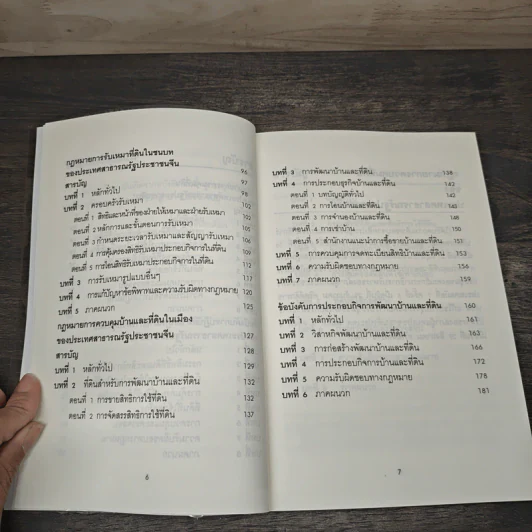 กฎหมายการรับเหมาที่ดินในชนบท
ของประเทศสาธารณรัฐประชาชนจีน 96
สารบัญ 97
บทที่ 1 หลักทั่วไป 98
บทที่ 2 ครอบครัวรับเหมา 102
ตอนที่ 1 สิทธิและหน้าที่ของฝ่ายให้เหมาและฝ่ายรับเหมา 102
ตอนที่ 2 หลักการและขั้นตอนการรับเหมา 105
ตอนที่ 3 กำหนดระยะเวลารับเหมาและสัญญารับเหมา
ตอนที่ 4 การคุ้มครองสิทธิรับเหมาประกอบกิจการในที่ดิน
ตอนที่ 5 การโอนสิทธิรับเหมาประกอบกิจการในที่ดิน 112
บทที่ 3 การรับเหมารูปแบบอื่นๆ 117
บทที่ 4 การแก้ปัญหาข้อพิพาทและความรับผิดทางกฎหมาย 120
บทที่ 5 ภาคผนวก 125
กฎหมายการควบคุมบ้านและที่ดินในเมือง
ของประเทศสาธารณรัฐประชาชนจีน 127
สารบัญ 128
บทที่ 1 หลักทั่วไป 129
บทที่ 2 ที่ดินสำหรับการพัฒนาบ้านและที่ดิน 132
ตอนที่ 1 การขายสิทธิการใช้ที่ดิน 132
ตอนที่ 2 การจัดสรรสิทธิการใช้ที่ดิน 137
6
บทที่ 3 การพัฒนาบ้านและที่ดิน 138
บทที่ 4 การประกอบธุรกิจบ้านและที่ดิน 142
ตอนที่ 1 บทบัญญัติทั่วไป 142
ตอนที่ 2 การโอนบ้านและที่ดิน 145
ตอนที่ 3 การจำนองบ้านและที่ดิน 148
ตอนที่ 4 การเช่าบ้าน 150
ตอนที่ 5 สำนักงานแนะนำการซื้อขายบ้านและที่ดิน 151
บทที่ 5 การควบคุมการจดทะเบียนสิทธิบ้านและที่ดิน 153
บทที่ 6 ความรับผิดชอบทางกฎหมาย 156
บทที่ 7 ภาคผนวก 159
ข้อบังคับการประกอบกิจการพัฒนาบ้านและที่ดิน 160
บทที่ 1 หลักทั่วไป 161
บทที่ 2 วิสาหกิจพัฒนาบ้านและที่ดิน 163
บทที่ 3 การก่อสร้างพัฒนาบ้านและที่ดิน 166
บทที่ 4 การประกอบกิจการบ้านและที่ดิน 172
บทที่ 5 ความรับผิดชอบทางกฎหมาย 178
บทที่ 6 ภาคผนวก 181
7